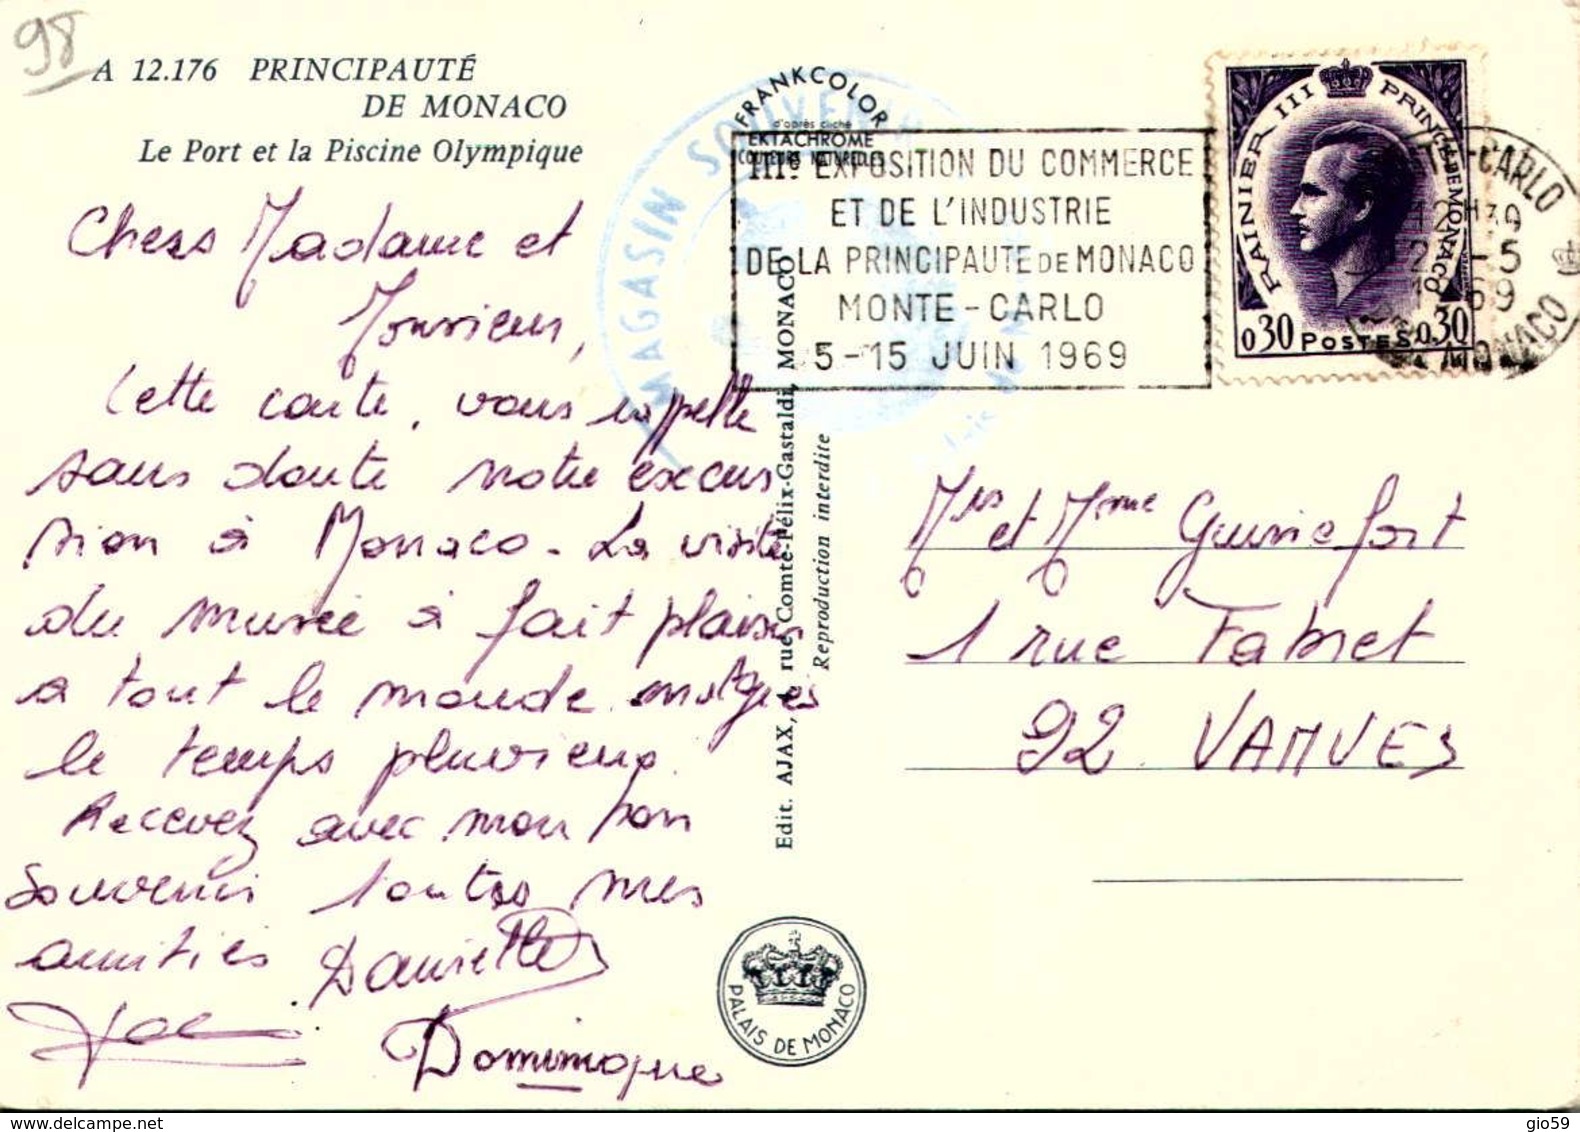 98
A 12.176 PRINCIPAUTÉ
DE MONACO
Le Port et la Piscine Olympique
Chers Madame et
Monsieur,
Cette carte, vous rappelle
sans doute notre excur
sion à Monaco - La visite
du musée à fait plaisir
a tout le monde malgrés
le temps pluvieux.
Recevez avec mon bon
Souvenir toutes mes
amitiés Danielle
Dominique
FRANKCOLOR
d'après cliché
EKTACHROME
COULEURS NATURELLES
MAGASIN SOUVENIR
IIIe EXPOSITION DU COMMERCE
ET DE L'INDUSTRIE
DE LA PRINCIPAUTE DE MONACO
MONTE-CARLO
5-15 JUIN 1969
RAINIER III PRINCE DE MONACO
0,30 POSTES 0,30
-CARLO
12H30
2 -5
1969
MONACO
Edit. AJAX, rue Comte-Félix-Gastaldi, MONACO
Reproduction interdite
Mrs et Mme Guinefort
1 rue Fabret
92 VANVES
PALAIS DE MONACO
www.delcampe.net
gio59